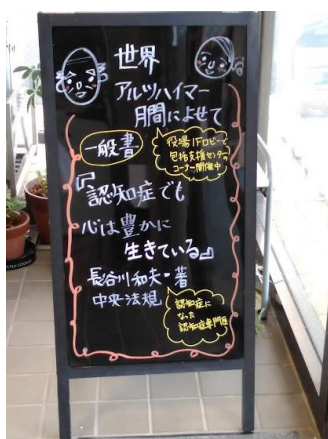 世界
アルツハイマー
月間によせて
一般書
役場1Fロビーで
包括支援センターの
コーナー開催中
『認知症でも
心は豊かに
生きている』
長谷川和夫・著
中央法規
認知症に
なった
認知症専門医